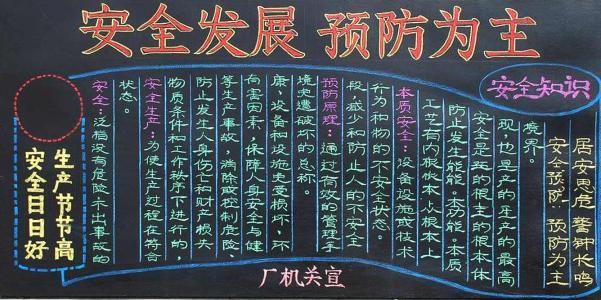 安全发展 预防为主
安全知识
安全:泛指没有危险不出事故的
状态。
安全生产:为使生产过程在符合
物质条件和工作秩序下进行的,
防止发生人身伤亡和财产损失
等生产事故,消除或控制危险、
向害因素,保障人身安全与健
康,设备和设施免受损坏,环
境免遭破坏的总称。
预防原理:通过有效的管理手
段,减少和防止人的不安全
行为和物的不安全状态。
本质安全:设备设施或技术
工艺有内根本占根本上
防止发生能能。本功能。本质
安全是五的根主的根本体
现,也是产的生产的最高
境界。
居安思危 警钟长鸣
安全预防 预防为主
生产节节高
安全日日好
厂机关宣